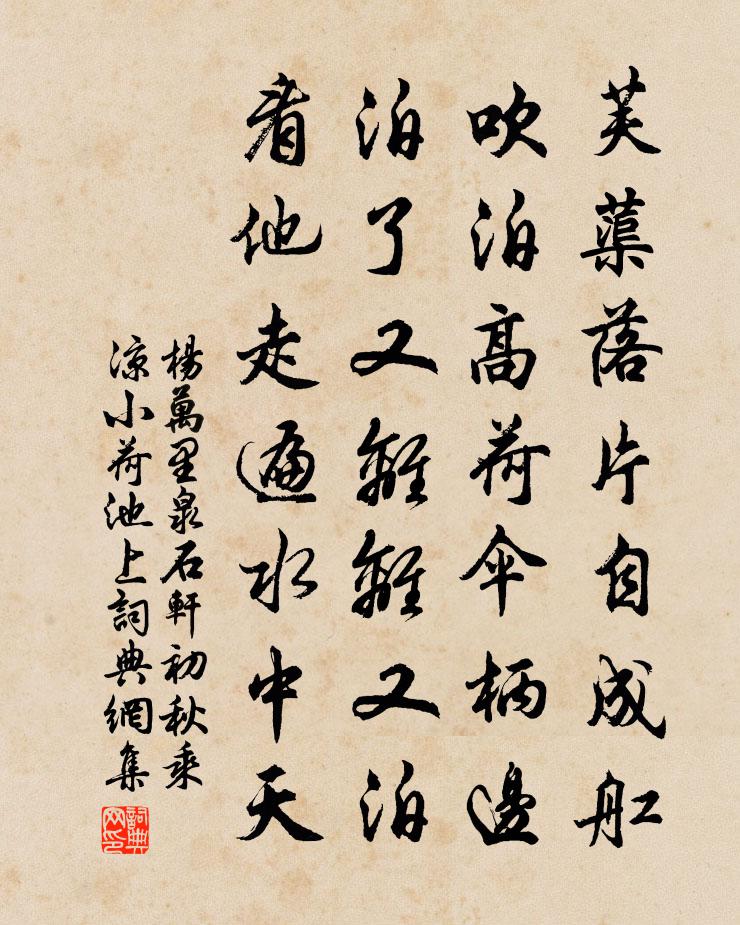 芙蕖落片自成舡
吹泊高荷伞柄邊
泊了又離離又泊
看他走遍水中天
楊萬里泉石軒初秋乘
涼小荷池上詞典網集
詞典网印